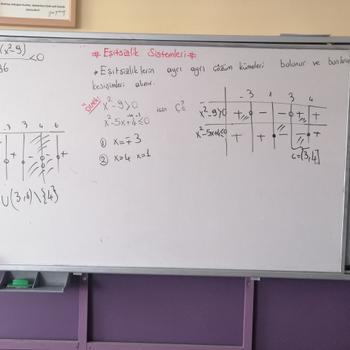 (x²-9)
<0
96
-3 3 4 6
+ - + +
∪(3,6)\{4}
* Eşitsizlik Sistemleri *
* Eşitsizliklerin ayrı ayrı çözüm kümeleri bulunur ve bunların
kesişimleri alınır.
Örnek: x²-9>0
x²-5x+4≤0 ise Ç=?
① x=∓3
② x=4 x=1
-3 1 3 4
x²-9>0 + - - + +
x²-5x+4≤0 + + - - +
Ç=(3,4]